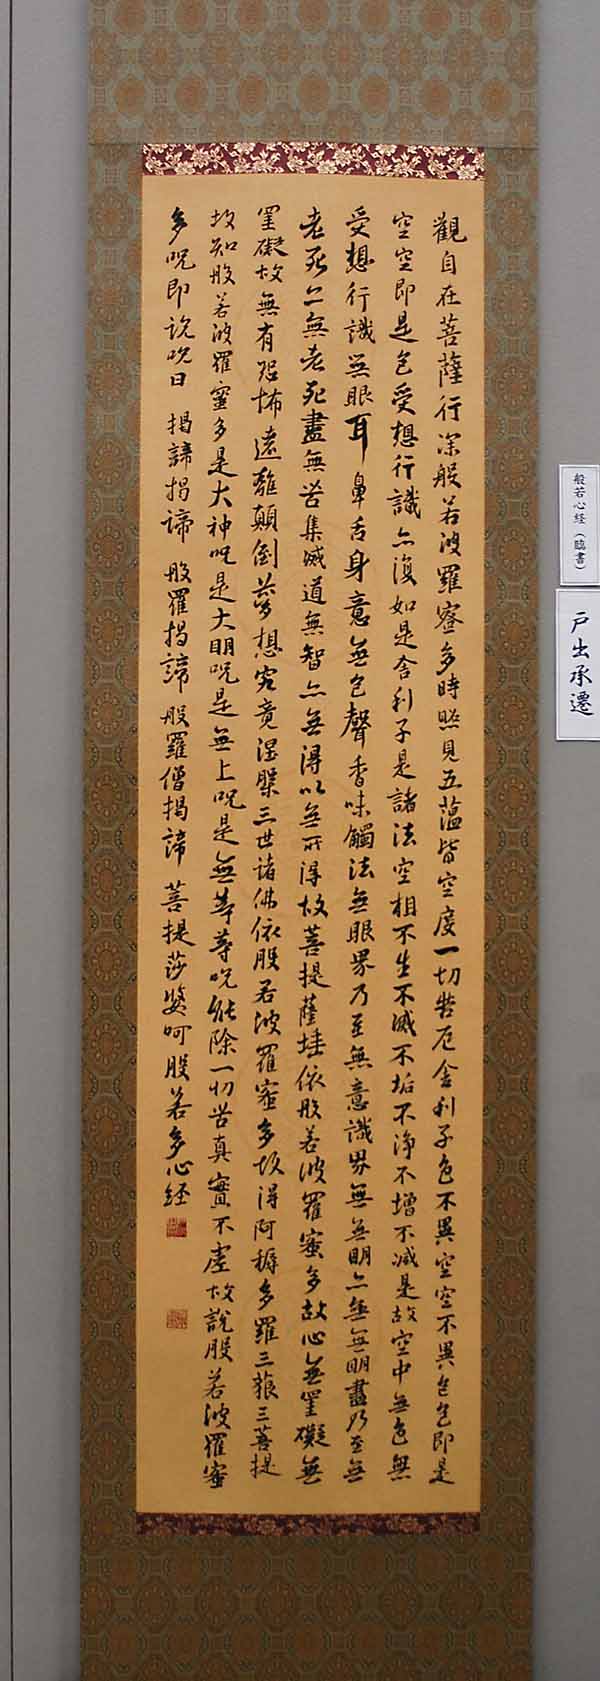 觀自在菩薩行深般若波羅蜜多時照見五蘊皆空度一切苦厄舍利子色不異空空不異色色即是
空空即是色受想行識亦復如是舍利子是諸法空相不生不滅不垢不淨不增不減是故空中無色無
受想行識無眼耳鼻舌身意無色聲香味觸法無眼界乃至無意識界無無明亦無無明盡乃至無
老死亦無老死盡無苦集滅道無智亦無得以無所得故菩提薩埵依般若波羅蜜多故心無罣礙無
罣礙故無有恐怖遠離顛倒夢想究竟涅槃三世諸佛依般若波羅蜜多故得阿耨多羅三藐三菩提
故知般若波羅蜜多是大神呪是大明呪是無上呪是無等等呪能除一切苦真實不虛故說般若波羅蜜
多呪即說呪曰 揭諦揭諦 般羅揭諦 般羅僧揭諦 菩提莎婆呵般若多心經
般若心経（臨書）
戸出承遷